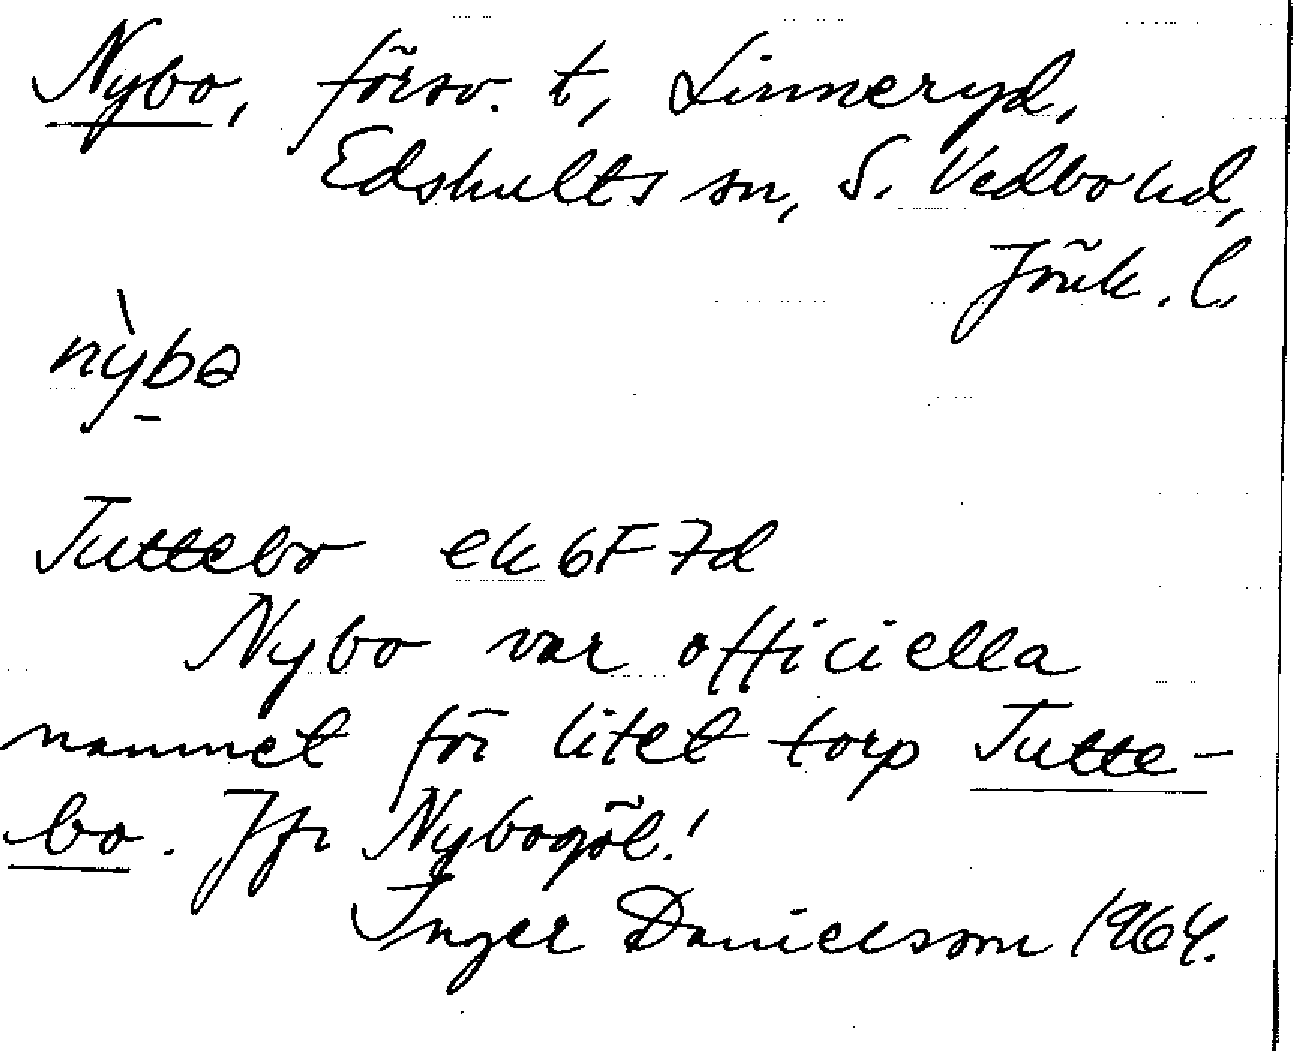 Nybo, försv. t, Linneryd,
Edshults sn, S. Vedbo hd,
Jönk. l.
nỳbə
Tuttebo ek 6F 7d
Nybo var officiella
namnet för litet torp Tutte-
bo. Jfr Nybogöl!
Inger Danielsson 1964.